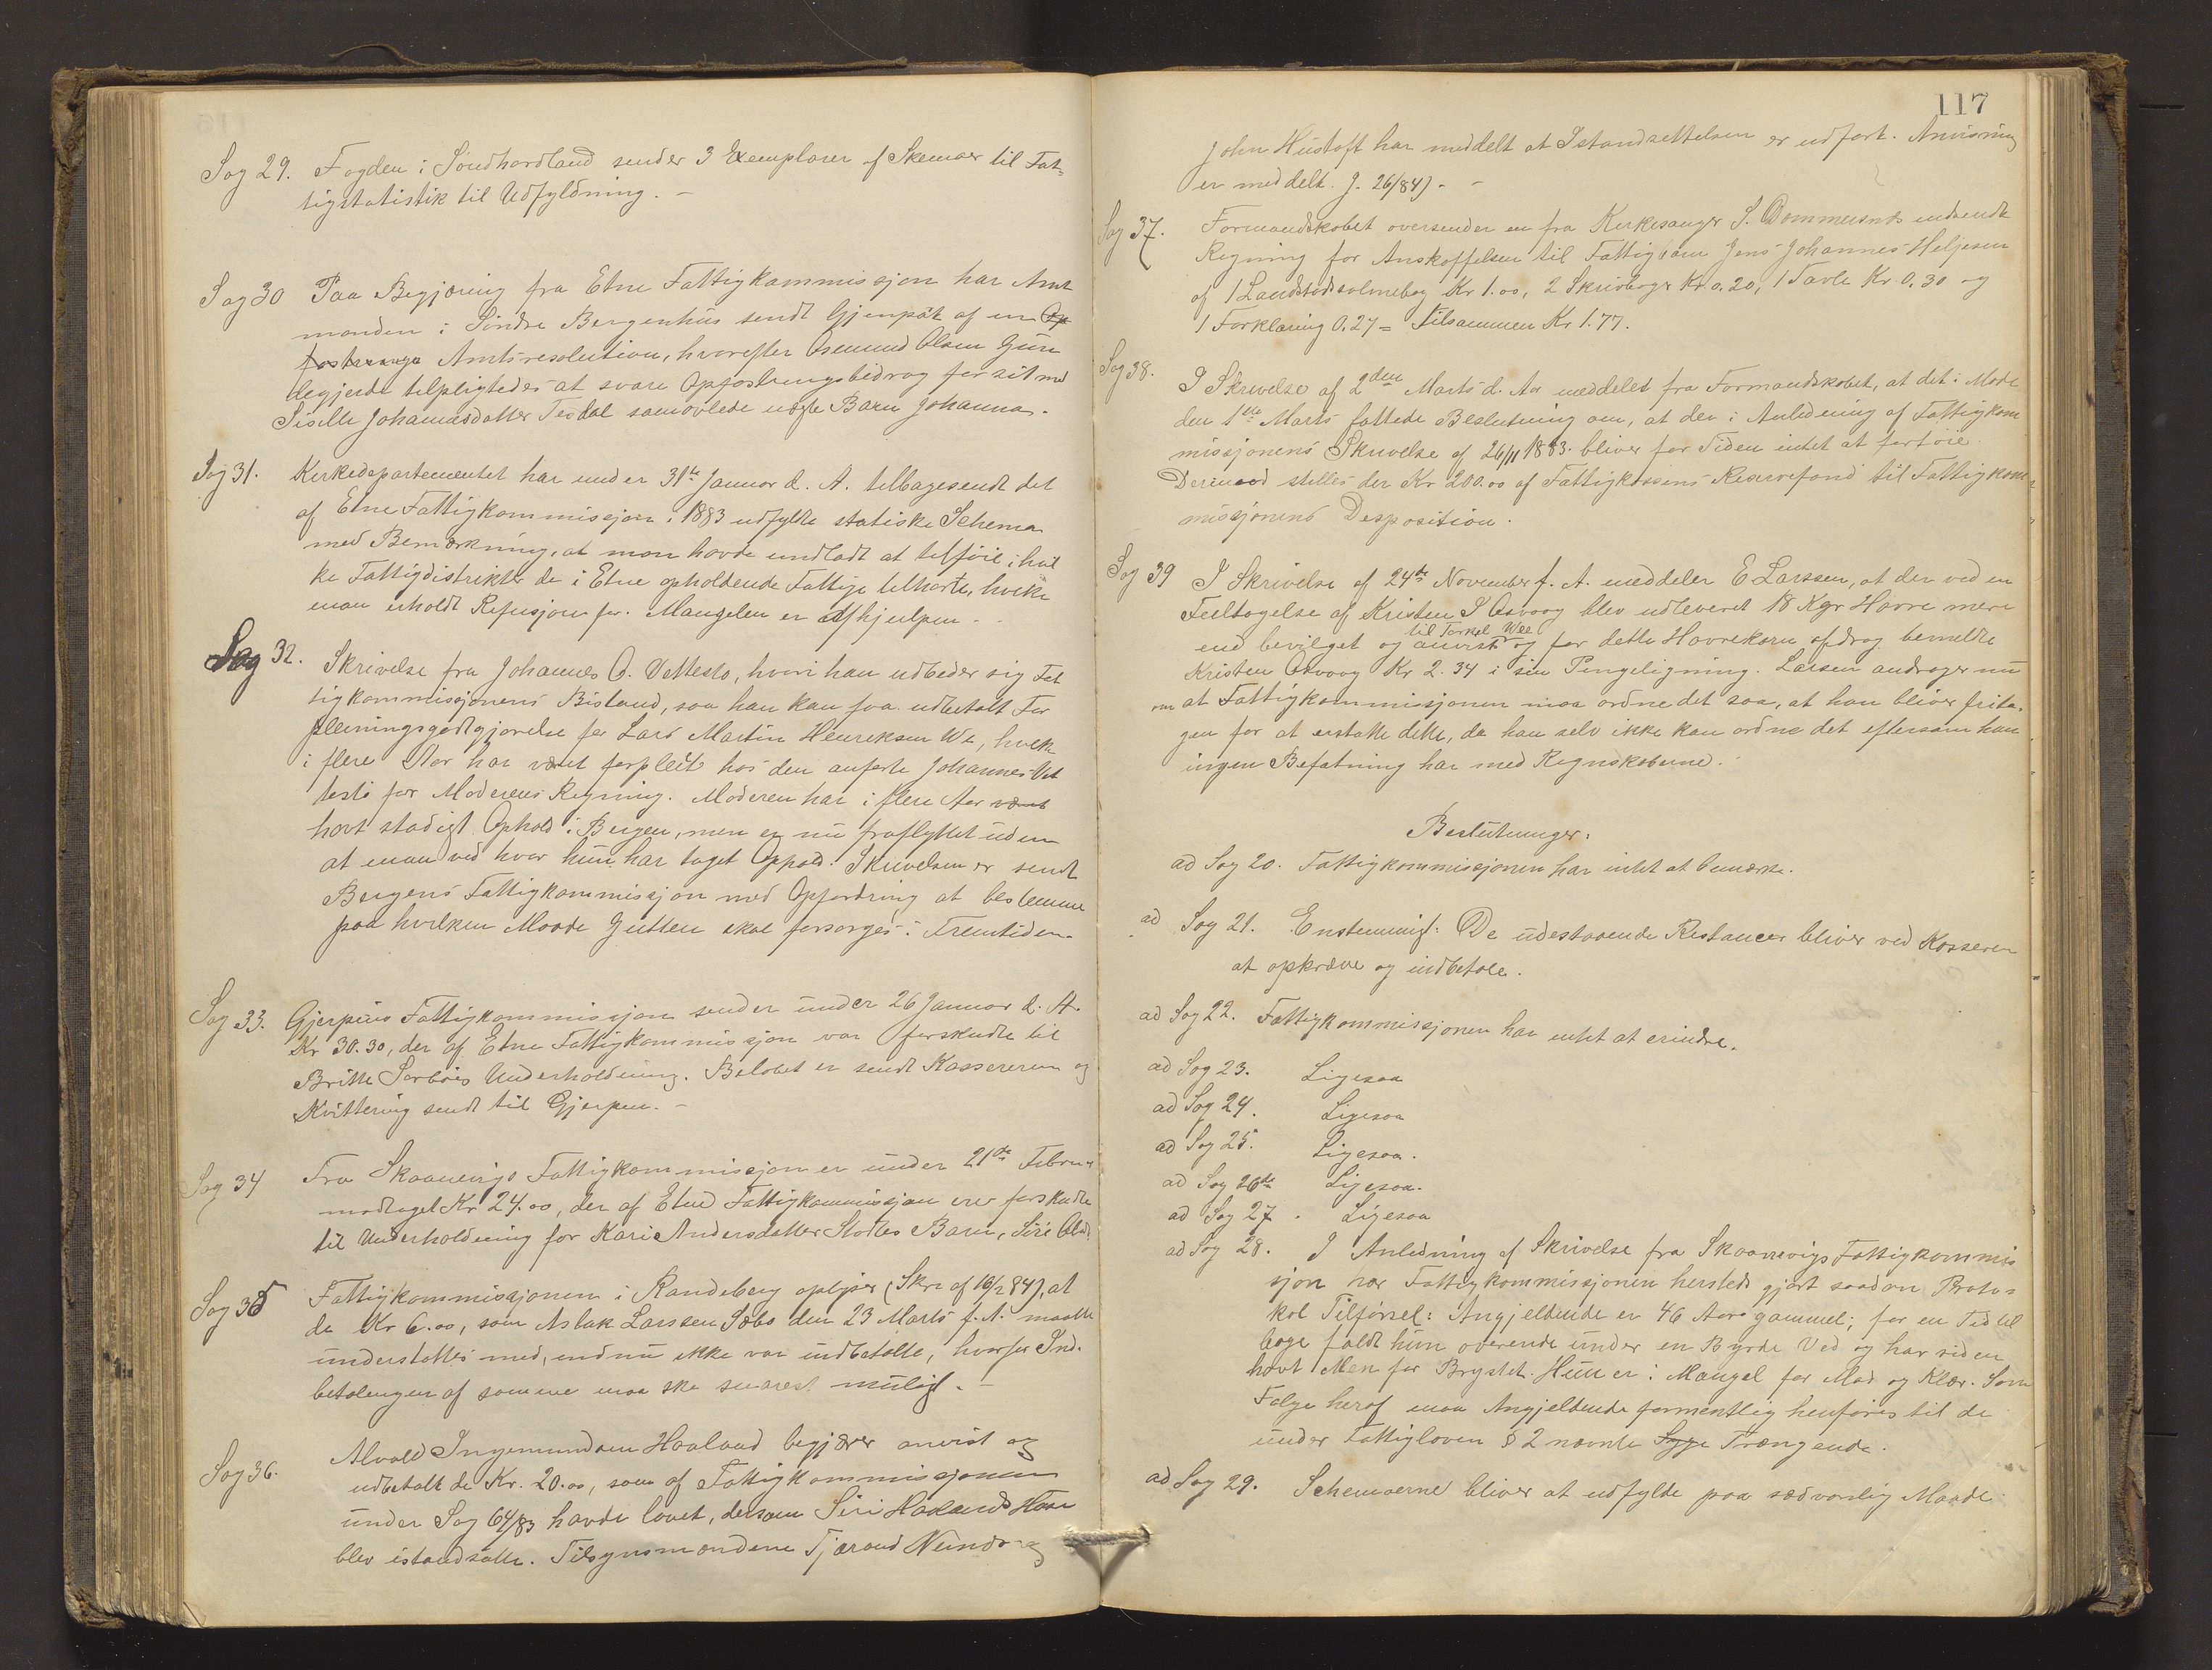 Sag 29. Fogden i Søndhordland sender 3 Exemplarer af Skemaer til Fat-
tigstatistik til Udfyldning. -
Sag 30 Paa Begjæring fra Etne Fattigkommissjon har Amt
manden i Søndre Bergenhus sendt Gjenpart af en Op
fostrings Amtsresolution, hvorefter Asmund Olsen Gun
degjerde tilpligtedes at svare Opfostringsbidrag for sit med
Siselle Johannasdatter Tesdal samavlede uægte Barn Johanna.
Sag 31. Kirkedepartementet har under 31te Januar d. A. tilbagesendt det
af Etne Fattigkommissjon i 1883 udfyldte statiske Schema
med Bemærkning, at man havde undladt at tilføie i hvil
ke Fattigdistrikter de i Etne opholdende Fattige tilhørte, hvilke
man erholdt Refusjon for. Mangelen er afhjulpen. -
Sag 32. Skrivelse fra Johannes O. Vettestø, hvori han udbeder sig Fat
tigkommissjonens Bistand, saa han kan faa udbetalt For
pleiningsgodtgjørelse for Lars Martin Henriksen We, hvilk
i flere Aar har været forpleit hos den anførte Johannes Vet
testø for Moderens Regning. Moderen har i flere Aar været
havt stadigt Ophold i Bergen, men er nu fraflyttet uden
at man ved hvor hun har taget Ophold. Skrivelsen er sendt
Bergens Fattigkommissjon med Opfordring at bestemme
paa hvilken Maade Gutten skal forsørges i Fremtiden.
Sag 33. Gjerpens Fattigkommissjon sender under 26 Januar d. A.
Kr 30.30, der af Etne Fattigkommissjon var forskudte til
Britte Sørbøes Underholdning. Beløbet er sendt Kassereren og
Kvittering sendt til Gjerpen. -
Sag 34 Fra Skaanevigs Fattigkommissjon er under 21de Februar
modtaget Kr 24.00, der af Etne Fattigkommissjon var forskudte
til Underholdning for Kari Andersdatter Barn, Siri
Sag 35 Fattigkommissjonen i Randeberg oplyser (Skr. af 16/2 84), at
de Kr 6.00, som Aslak Larssen Sæbø den 23 Marts f. A. maatte
understøttes med, endnu ikke var indbetalte, hvorfor Ind-
betalingen af samme maa ske snarest muligt. -
Sag 36. Alvald Ingemundsen Haaland begjærer anvist og
udbetalt de Kr. 20.00, som af Fattigkommissjonen
under Sag 64/83 havde lovet, dersom Siri Haalands Huse
blev istandsatte. Tilsynsmændene Tjerand og
117
John Hustoft har meddelt at Istandsettelsen er udført. Anvisning
er meddelt. J. 26/84). -
Sag 37. Formandskabet oversender en fra Kirkesanger S. Dommersnes indsendt
Regning for Anskaffelsen til Fattigbarn Jens Johannes Heljesen
af 1 Landstadsalmebog Kr 1.00, 2 Skrivbøger Kr 0.20, 1 Tavle Kr. 0.30 og
1 Forklaring 0.27 = Tilsammen Kr 1.77.
Sag 38. I Skrivelse af 2den Marts d. Aar meddeles fra Formandskabet, at det i Møde
den 1ste Marts fattede Beslutning om, at der i Anledning af Fattigkom
missjonens Skrivelse af 26/11 1883. bliver for Tiden intet at fortoie
Derimod stilles der Kr 200.00 af Fattigkassens Reservefond til Fattigkom-
missjonens Desposition.
Sag 39 I Skrivelse af 24de November f. A. meddeler E Larssen, at der ved en
Feiltagelse af Kristen S Osvaag blev udleveret 18 Kgr Havre mere
til Torkel Wee
end bevilget og anvist og for dette Havrekorn afdrog bemeldte
Kristen Osvaag Kr 2.34 i sin Pengeligning. Larsen andrager nu
om at Fattigkommissjonen maa ordne det saa, at han bliver frita-
gen for at erstatte dette, da han selv ikke kan ordne det eftersom han
ingen Befatning har med Regnskaberne.
Beslutninger:
ad Sag 20. Fattigkommissjonen har intet at bemærke.
ad Sag 21. Enstemmig: De udestaaende Restancer bliver ved Kasseren
at opkræve og indbetale.
ad Sag 22. Fattigkommissjonen har intet at erindre.
ad Sag 23. Ligesaa
ad Sag 24. Ligesaa
ad Sag 25. Ligesaa.
ad Sag 26de Ligesaa.
ad Sag 27. Ligesaa
ad Sag 28. I Anledning af Skrivelse fra Skaanevigs Fattigkommis
sjon har Fattigkommissjonen hersteds gjort saadan Proto-
kol Tilførsel: Angjeldende er 46 Aar gammel; for en Tid til
bage faldt hun overende under en Byrde Ved og har siden
havt Men for Brystet. Hun er i Mangel for Mad og Klær. Som
Følge heraf maa Angjeldende formentlig henføres til de
under Fattigloven § 2 nævnte Syge Trængende.
ad Sag 29. Schemaerne bliver at udfylde paa sædvanlig Maade